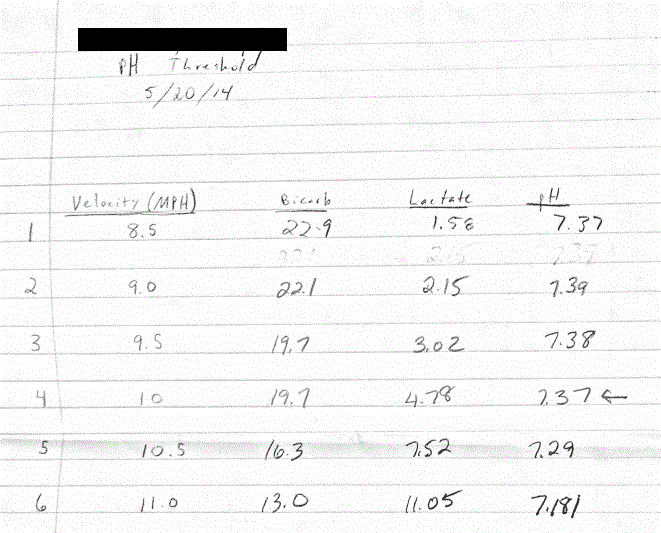 pH Threshold
5/20/14
Velocity (MPH) Bicarb Lactate pH
1 8.5 22.9 1.58 7.37
2 9.0 22.1 2.15 7.39
3 9.5 19.7 3.02 7.38
4 10 19.7 4.78 7.37 ←
5 10.5 16.3 7.52 7.29
6 11.0 13.0 11.05 7.181